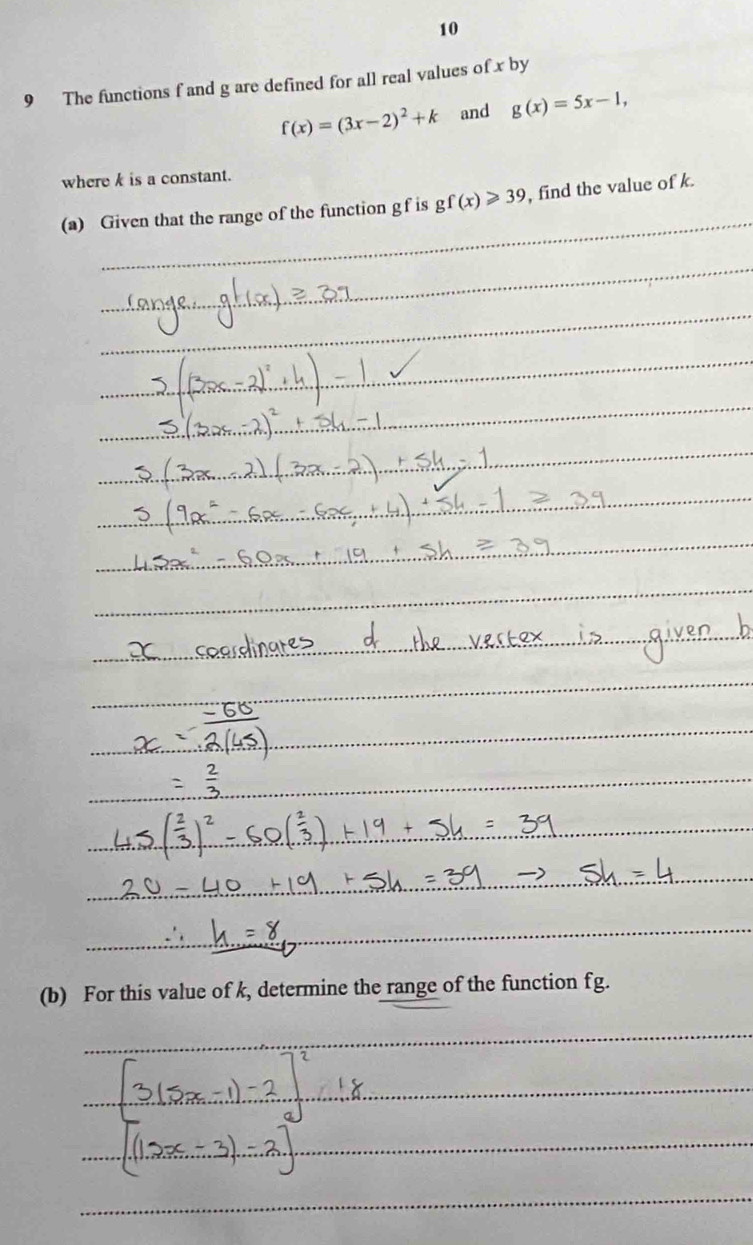 10
9 The functions f and g are defined for all real values of x by
f(x) = (3x − 2)² + k and g(x) = 5x − 1,
where k is a constant.
(a) Given that the range of the function gf is gf(x) ⩾ 39, find the value of k.
range gf(x) ≥ 39
5((3x − 2)² + k) − 1 ✓
5(3x − 2)² + 5k − 1
5(3x − 2)(3x − 2) + 5k − 1
5(9x² − 6x − 6x + 4) + 5k − 1 ≥ 39
45x² − 60x + 19 + 5k ≥ 39
x coordinates of the vertex is given b
x = − −60 / 2(45)
= 2/3
45(2/3)² − 60(2/3) + 19 + 5k = 39
20 − 40 + 19 + 5k = 39 → 5k = 4
∴ k = 8
(b) For this value of k, determine the range of the function fg.
[3(5x − 1) − 2]² + 8
[(15x − 3) − 2]²